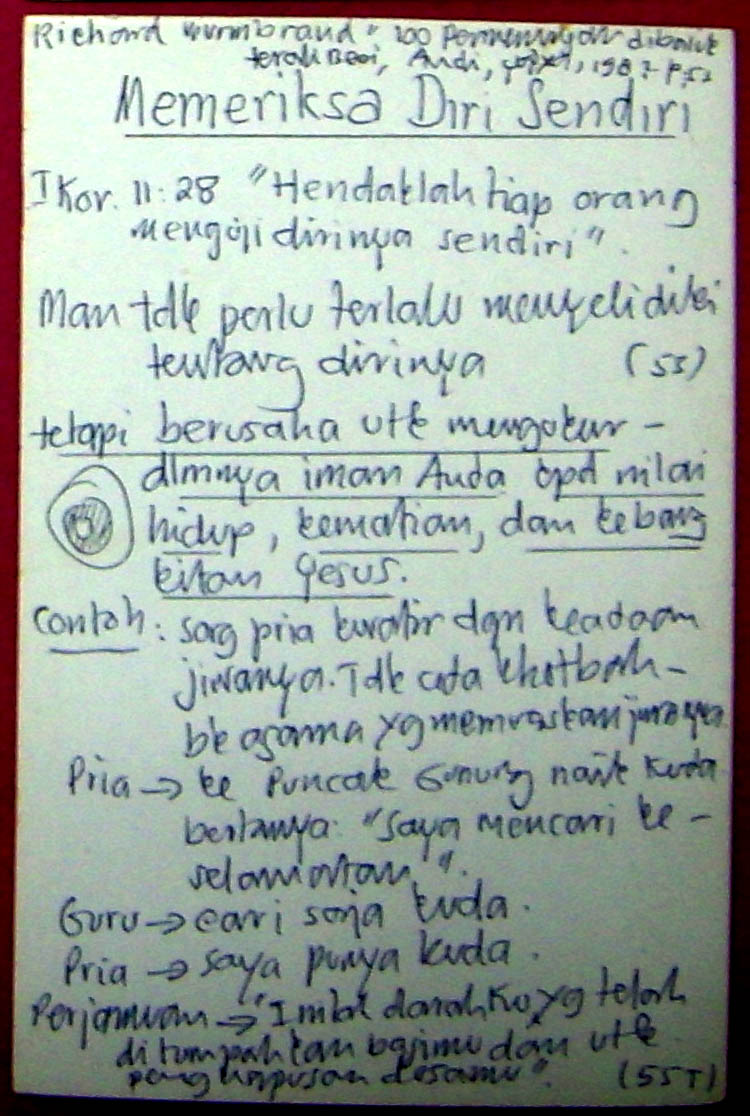 Richard Wurmbrand "100 Permenungan dibalik
terali Besi, Andi, 198 P.52
Memeriksa Diri Sendiri
I Kor. 11:28 "Hendaklah tiap orang
menguji dirinya sendiri".
Man tdk perlu terlalu menyelidiki
tentang dirinya (55)
tetapi berusaha utk mengukur -
dlmnya iman Anda kpd nilai
hidup, kematian, dan kebang
kitan Yesus.
Contoh: sorg pria kuatir dgn keadaan
jiwanya. Tdk ada khotbah -
bk agama yg memuaskan jiwanya.
Pria → ke Puncak Gunung naik kuda
bertanya: "Saya mencari ke -
selamatan".
Guru → cari saja kuda.
Pria → saya punya kuda.
Perjamuan → "Inilah darahKu yg telah
ditumpahkan bagimu dan utk
penghapusan dosamu". (55T)